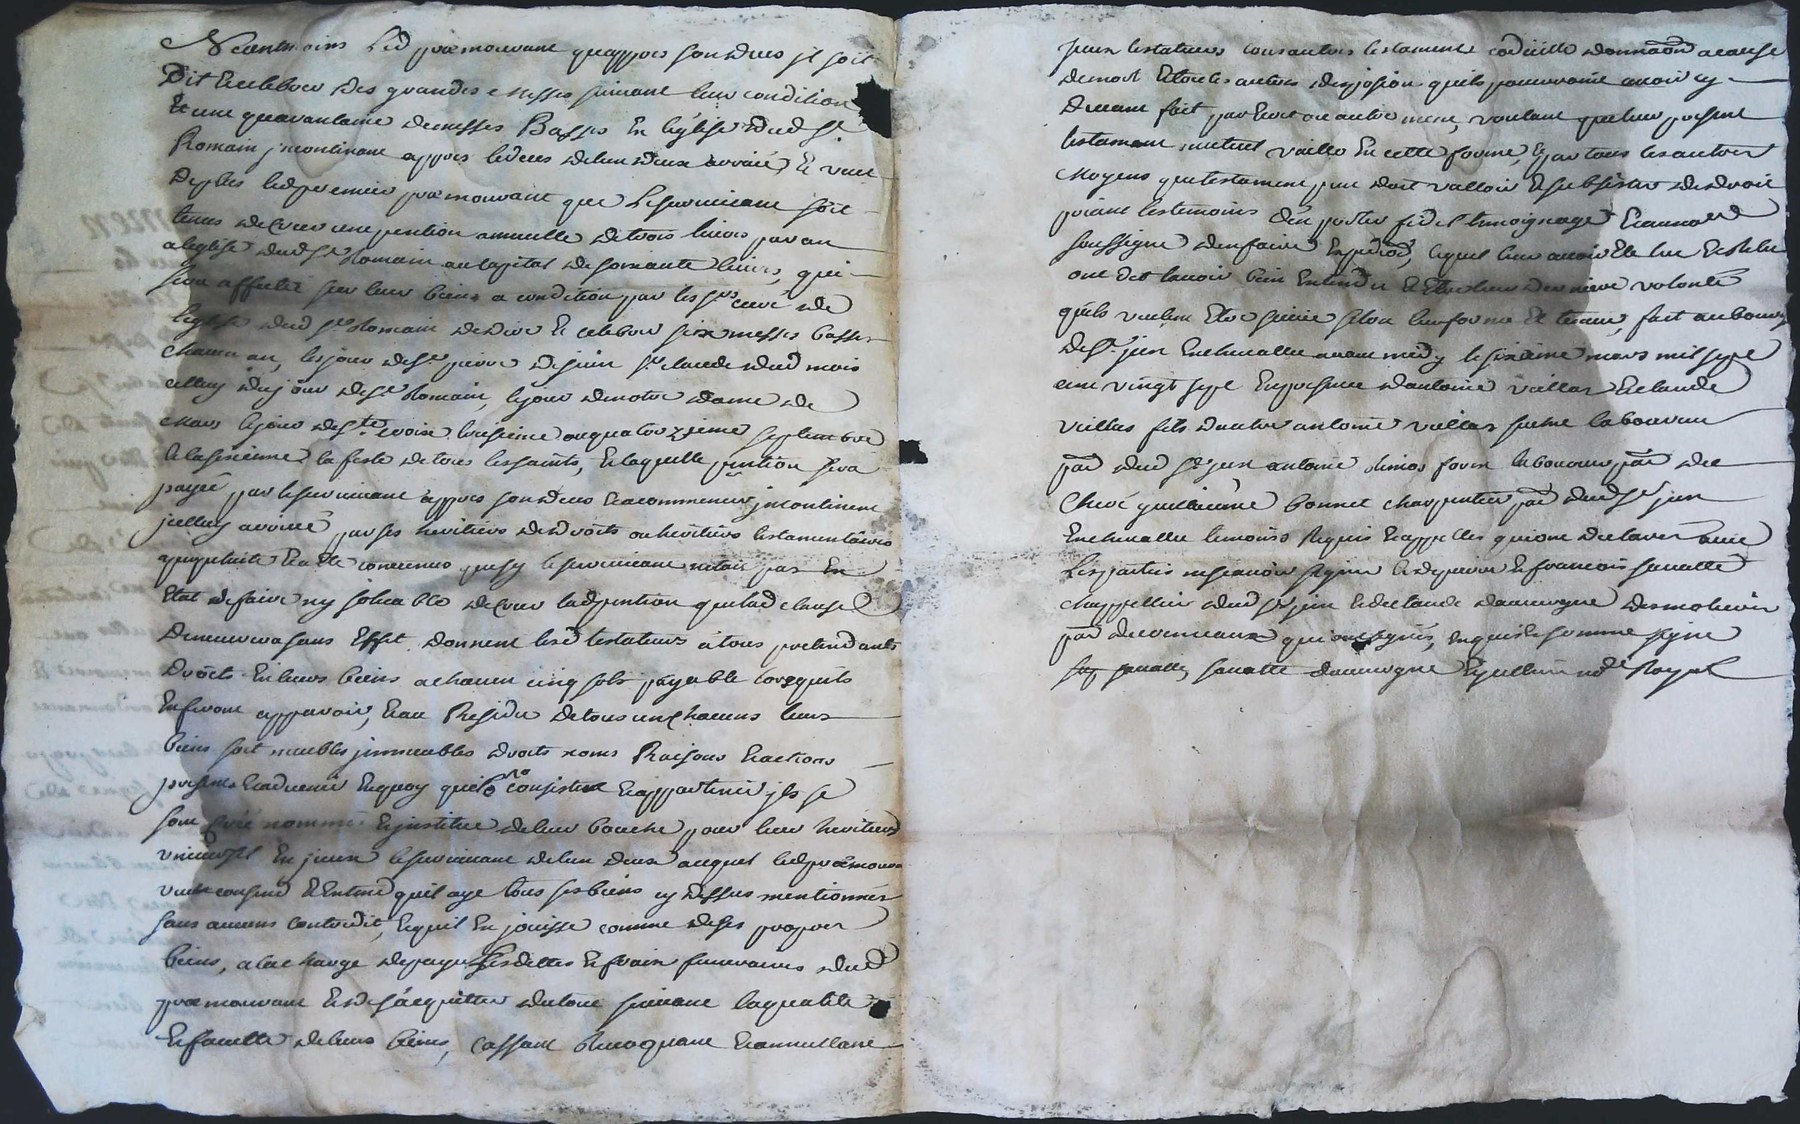 Neantmoins led praemourant qu'appres son deces il soit
dit et celebrer des grandes messes suivant leur condition
et une quarantaine de messes Basses en l'eglise dud St
Romain jncontinant appres le deces de l'un d'eux arrivé, et veut
de plus led premier praemourant que le survivant soit
tenus de creer une pention annuelle de trois livres par an
a l'eglise dud St Romain au capital de soixante livres, qui
sera affectée sur leur biens a condition par les srs curé de
l'eglise dud St Romain de dire et celebrer six messes basses
chacun an, le jour de St pierre de juin St claude dud mois
celluy du jour de St Romain, le jour de notre dame de
mars le jour de ste croix troisieme ou quatorzieme septembre
et la sixieme la feste de tous les saints, et laquelle pention sera
payée par le survivant appres son deces et a commencer jncontinent
jcelluy arrivé par ses heritiers de droits ou heritiers testamentaires
a perpetuité et a été convenus que sy le survivant n'etoit pas en
Etat de faire ny solvable de creer lad pention que lad clause
demeurera sans Effet, donnent lesd testateurs à tous pretendants
droits en leurs biens a chacun cinq sols payable lorsquils
en feront apparoir, et au Residu de tous un chacuns leurs
biens soit meubles jmmeubles droits noms Raisons et actions
presents et advenir en quoy quils consistent et appartenir jls se
sont créé nommé et jnstitué de leur bouche pour leur heritiers
universel en jceux le survivant de l'un d'eux auquel led praemourant
veut consent et entend qu'il aye tous ses biens cy dessus mentionnés
sans aucuns contredit, et qu'il en jouisse comme de ses propres
biens, a la charge de payer ses dettes et fraix funeraires dud
praemourant et de s'acquitter du tout suivant la qualité
et faculté de leurs biens, cassant Revoquant et annullant
jceux testateurs tous autres testament codicille donnaon a cause
de mort et toutes autres disposion quils pourroient avoir cy
devant fait par Ecrit ou autrement, voulant que leur present
testament nuncupatif vaille en cette forme, et par tous les autres
moyens que testament peut doit valloir et subsister de droit
priant les temoins d'en porter fidel temoignage et a nored
soussigné d'en faire Expedon, lequel leur avoir Eté lu et relu
ont dit l'avoir bien Entendu et etre leur derniere volonté
qu'ils veulent Etre suivie selon leur forme et teneur, fait au bourg
de St jean en chevallu avant midy le sixieme mars mil sept
cent vingt sept en presence d'antoine vallas et claude
vallas fils d'autre antoine vallas laboureur
par dud St jean antoine laboureur par de
Chere guillaume bonnet charpentier par dud St jean
En chevallu temoins Requis et appellés qui ont declarer avec
les parties ne scavoir signer de ce enquis et francois savatte
chappellier dud St jean et de claude dauvergne
par de qui ont signés, enquis et sommé signe
savatte dauvergne nore Royal